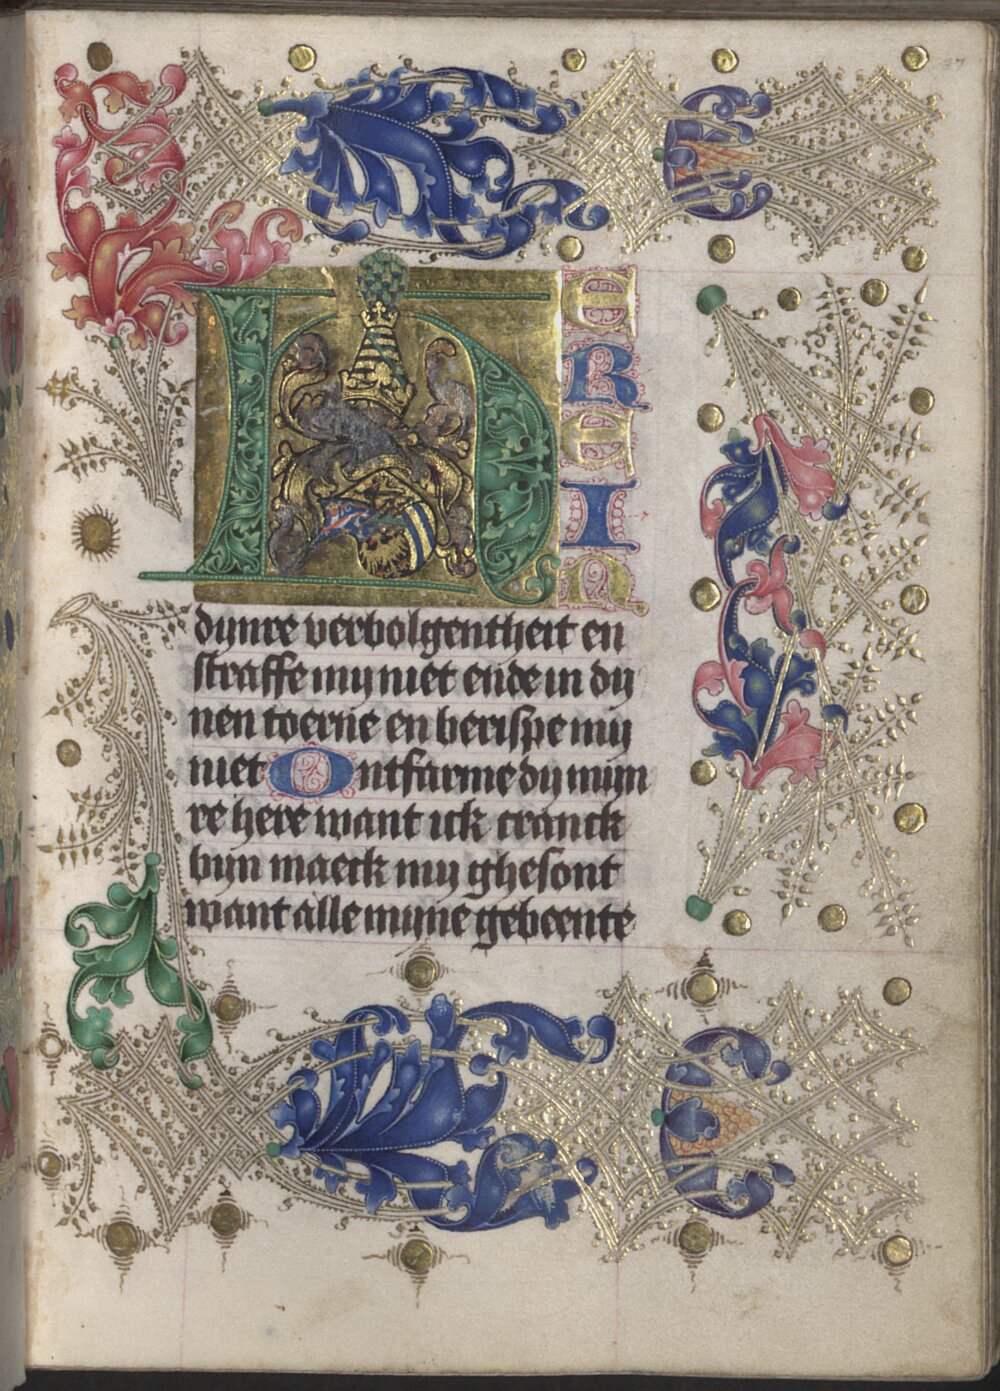 HEREIN
dynre verbolgentheit en
straffe my niet ende in dy
nen toerne en berispe my
niet Ontfarme dy myn
re here want ick cranck
byn maeck my ghesont
want alle myne gebeente